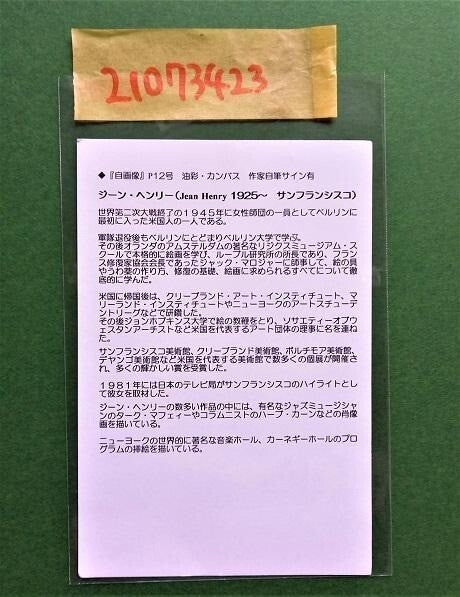 21073423
◆『自画像』P12号　油彩・カンバス　作家自筆サイン有
ジーン・ヘンリー(Jean Henry 1925～　サンフランシスコ)
世界第二次大戦終了の１９４５年に女性師団の一員としてベルリンに
最初に入った米国人の一人である。
軍隊退役後もベルリンにとどまりベルリン大学で学ぶ。
その後オランダのアムステルダムの著名なリジクスミュージアム・ス
クールで本格的に絵画を学び、ルーブル研究所の所長であり、フラン
ス修復家協会会長であったジャック・マロジャーに師事して、絵の具
やうわ薬の作り方、修復の基礎、絵画に求められるすべてについて徹
底的に学んだ。
米国に帰国後は、クリーブランド・アート・インスティチュート、マ
リーランド・インスティチュートやニューヨークのアートスチューデ
ントリーグなどで研鑽した。
その後ジョンホプキンス大学で絵の教鞭をとり、ソサエティーオブウ
ェスタンアーチストなど米国を代表するアート団体の理事に名を連ね
た。
サンフランシスコ美術館、クリーブランド美術館、ボルチモア美術館、
デヤンゴ美術館など米国を代表する美術館で数多くの個展が開催さ
れ、多くの輝かしい賞を受賞した。
１９８１年には日本のテレビ局がサンフランシスコのハイライトとし
て彼女を取材した。
ジーン・ヘンリーの数多い作品の中には、有名なジャズミュージシャ
ンのターク・マフィーやコラムニストのハーブ・カーンなどの肖像
画を描いている。
ニューヨークの世界的に著名な音楽ホール、カーネギーホールのプロ
グラムの挿絵を描いている。